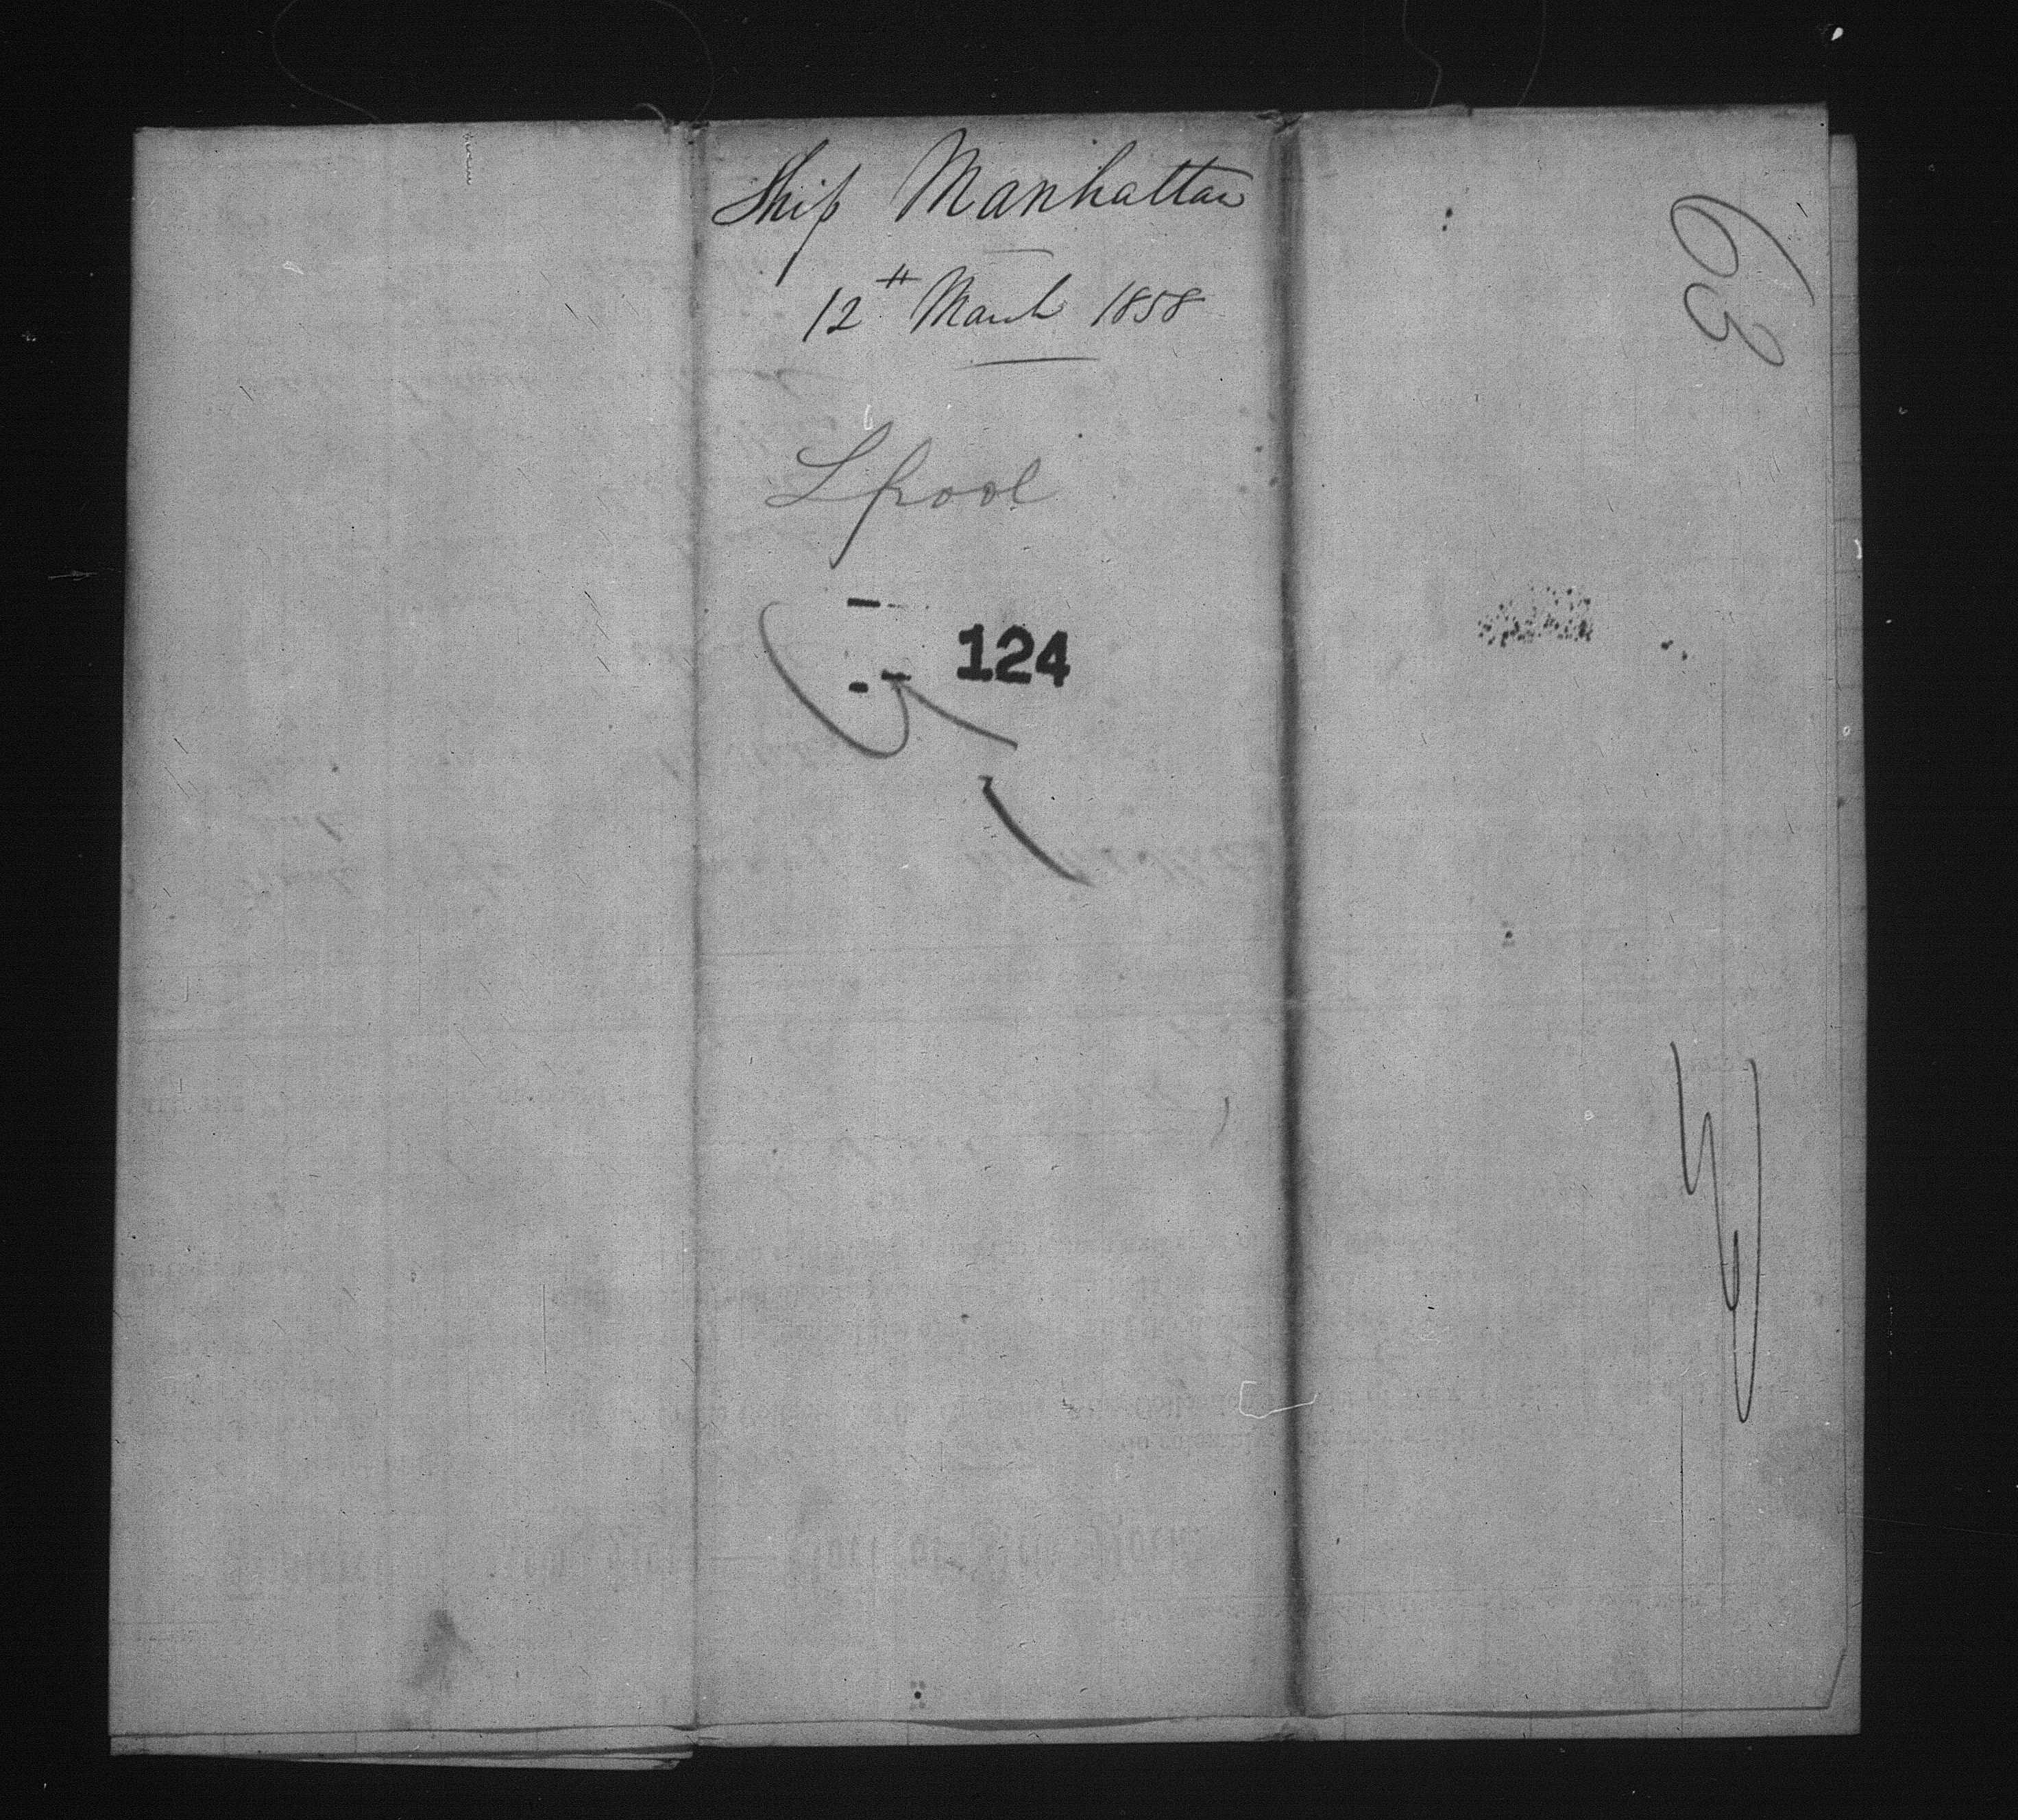 Ship Manhattan
12th March 1858
Lpool
124
63